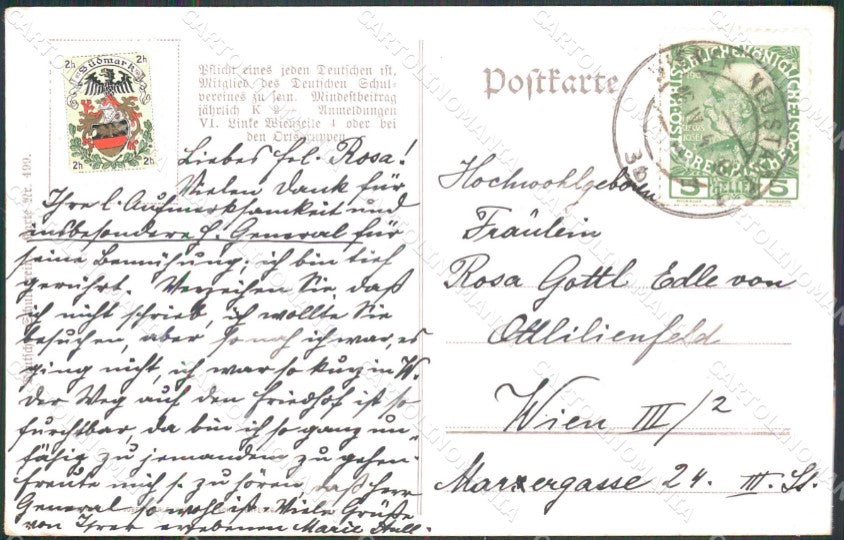 2h Südmark 2h
2h 2h
Pflicht eines jeden Deutschen ist,
Mitglied des Deutschen Schul-
vereines zu sein. Mindestbeitrag
jährlich K 2·– Anmeldungen
VI. Linke Wienzeile 4 oder bei
den Ortsgruppen.
Karte Nr. 499.
Liebes frl. Rosa!
Vielen Dank für
Ihre l. Aufmerksamkeit und
insbesondere H. General für
seine Bemühung; ich bin tief
gerührt. Verzeihen Sie, daß
ich nicht schrieb, ich wollte Sie
besuchen, aber so nah ich war, es
ging nicht, ich war so kurz in W.
der Weg auf den Friedhof ist so
furchtbar, da bin ich so ganz un-
fähig zu jemandem zu gehen.
freute mich s. zu hören, daß Herr
General so wohl ist. Viele Grüße
von Ihrer ergebenen Marie
Postkarte
WIENER NEUSTADT
3b
5 HELLER 5
Hochwohlgeboren
Fräulein
Rosa Gottl Edle von
Ottlilienfeld
Wien III/2
Marxergasse 24. III. St.
CARTOLINOMANIA